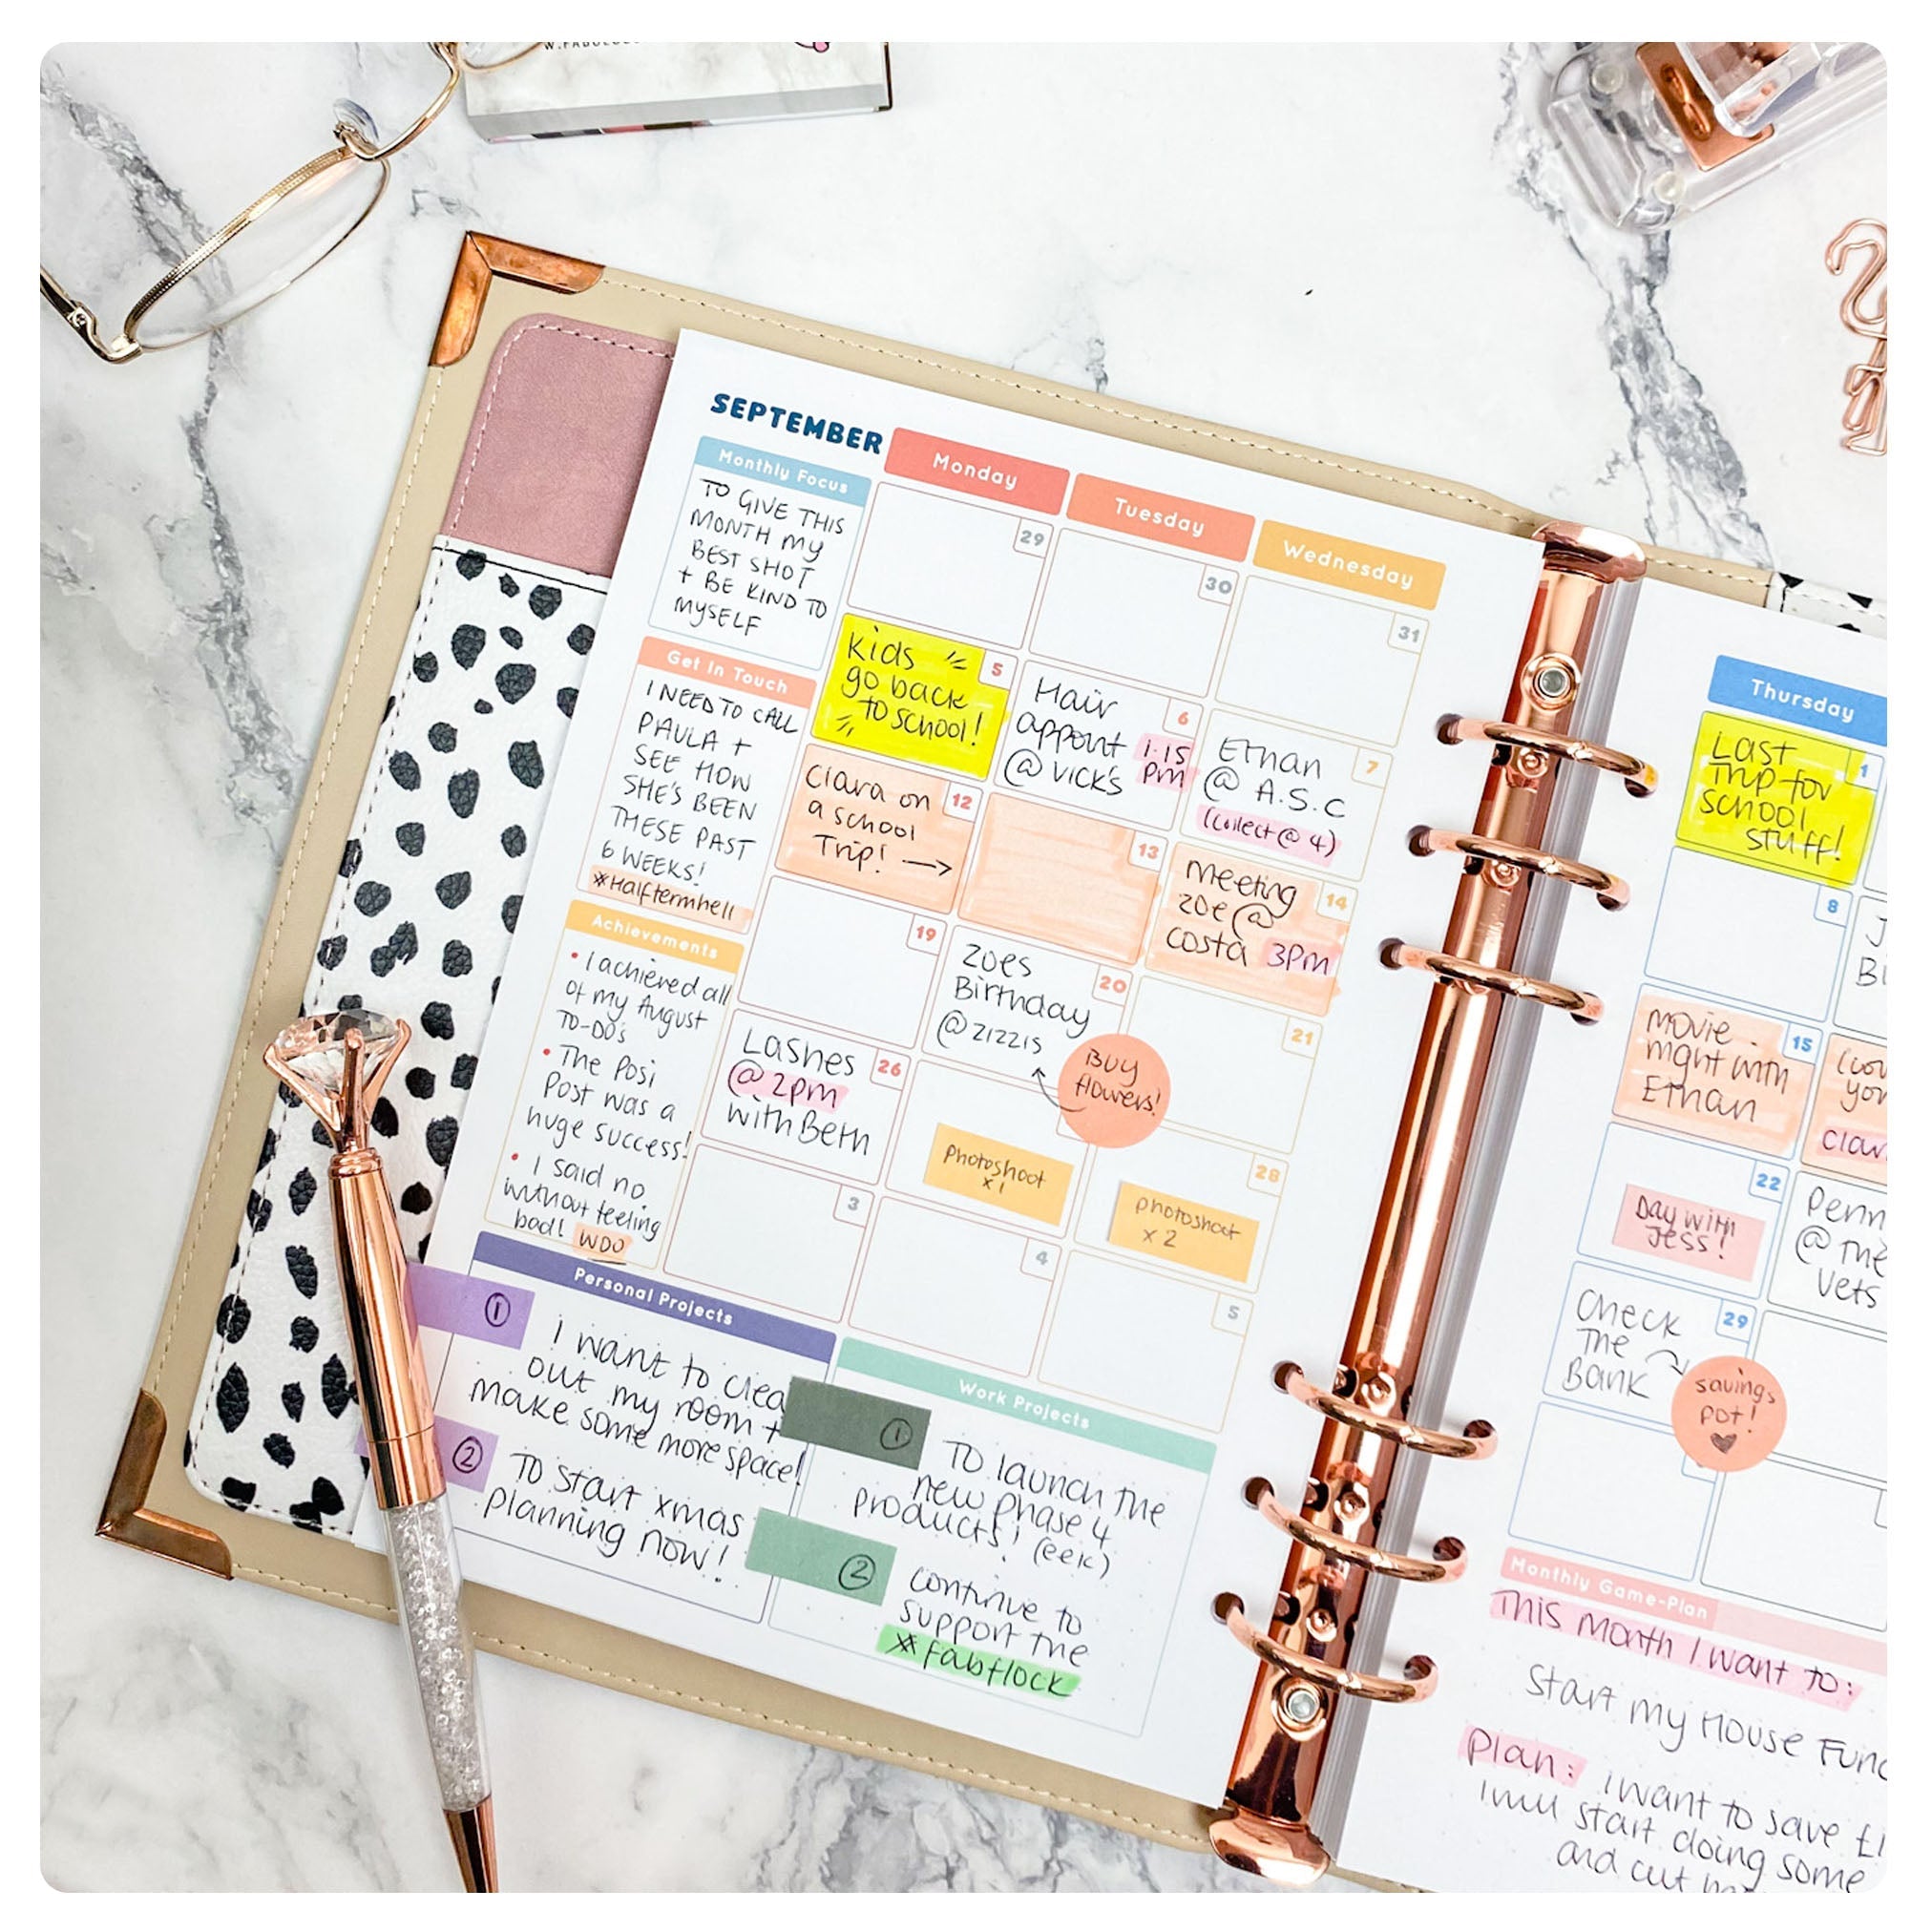 SEPTEMBER
Monthly Focus
TO GIVE THIS
MONTH MY
BEST SHOT
+ BE KIND TO
MYSELF
Get In Touch
I NEED TO CALL
PAULA +
SEE HOW
SHE'S BEEN
THESE PAST
6 WEEKS!
#Halftermhell
Achievements
• I achieved all
of my August
TO-DO's
• The Posi
Post was a
huge success!
• I said no
without feeling
bad! WOO
Monday
Tuesday
Wednesday
29
30
31
Kids
go back
to school!
5
Hair
appont 1.15
@ Vick's pm
6
Ethan
@ A.S.C
(collect @ 4)
7
Clara on
a school
Trip! →
12
13
meeting
zoe @
costa 3pm
14
19
Zoes
Birthday
@ zizzis
20
BUY
flowers!
21
Lashes
@ 2pm
with Beth
26
Photoshoot
x 1
28
photoshoot
x 2
3
4
5
Personal Projects
1
I want to clea
out my room +
make some more space!
2
To start xmas
planning now!
Work Projects
1
To launch the
new phase 4
products! (eek)
2
continue to
support the
#fabflock
Thursday
Last
Trip for
school
stuff!
1
8
movie
night with
Ethan
15
22
Day with
Jess!
Penn
@ the
vets
Check
the
Bank
29
savings
pot!
Monthly Game-Plan
This month I want to:
Start my House Fun
plan: I want to save £1
I will start doing some
and cut